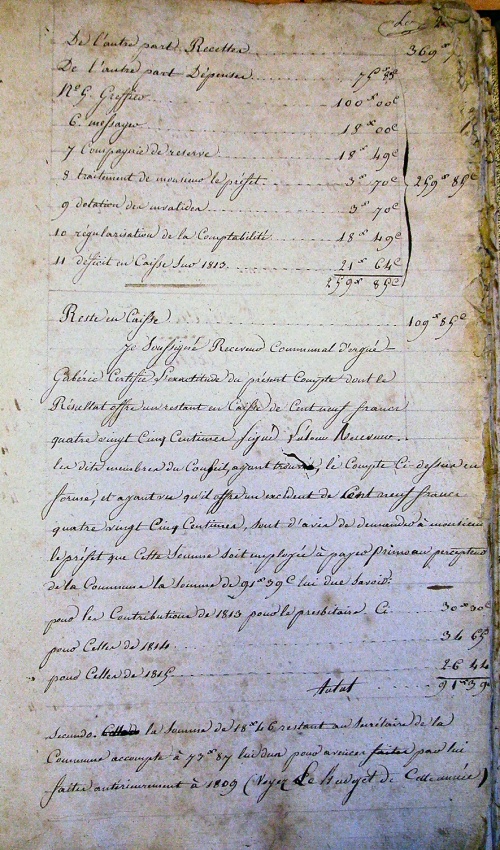 De l'autre part Recettes 369 7
De l'autre part Dépenses 75 85
N° 5. Greffier 100 00c
6. messager 18 00c
7 Compagnie de reserve 18 49c
8 traitement de monsieur le préfet 3 70c 259 85c
9 dotation des invalides 3 70c
10 regularisation de la Comptabilité 18 49c
11 déficit en Caisse sur 1813 21 64c
259 85c
Reste en Caisse 109 85c
Je Soussigné Receveur Communal d'ergué-
Gabéric Certifie l'exactitude du présent Compte dont le
Résultat offre un restant en Caisse de Cent neuf francs
quatre vingt Cinq Centimes signé Receveur.
les dits membres du Conseil, ayant trouvé, le Compte Ci-dessus en
forme, et ayant vu qu'il offre un excident de Cent neuf francs
quatre vingt Cinq Centimes, sont d'avis de demander à monsieur
le préfet que Cette Somme soit employée à payer primo au percepteur
de la Commune la somme de 91 39c lui due Savoir:
pour les Contributions de 1813 pour le presbitaire Ci 30 30c
pour Celles de 1814 34 65
pour Celles de 1815 26 44
91 39
Secundo. la somme de 18 46 restant au Secrétaire de la
Commune accompte à 77 87 lui dus pour avances faites par lui
faites antérieurement à 1809 (Voyez Le Budget de Cette année)